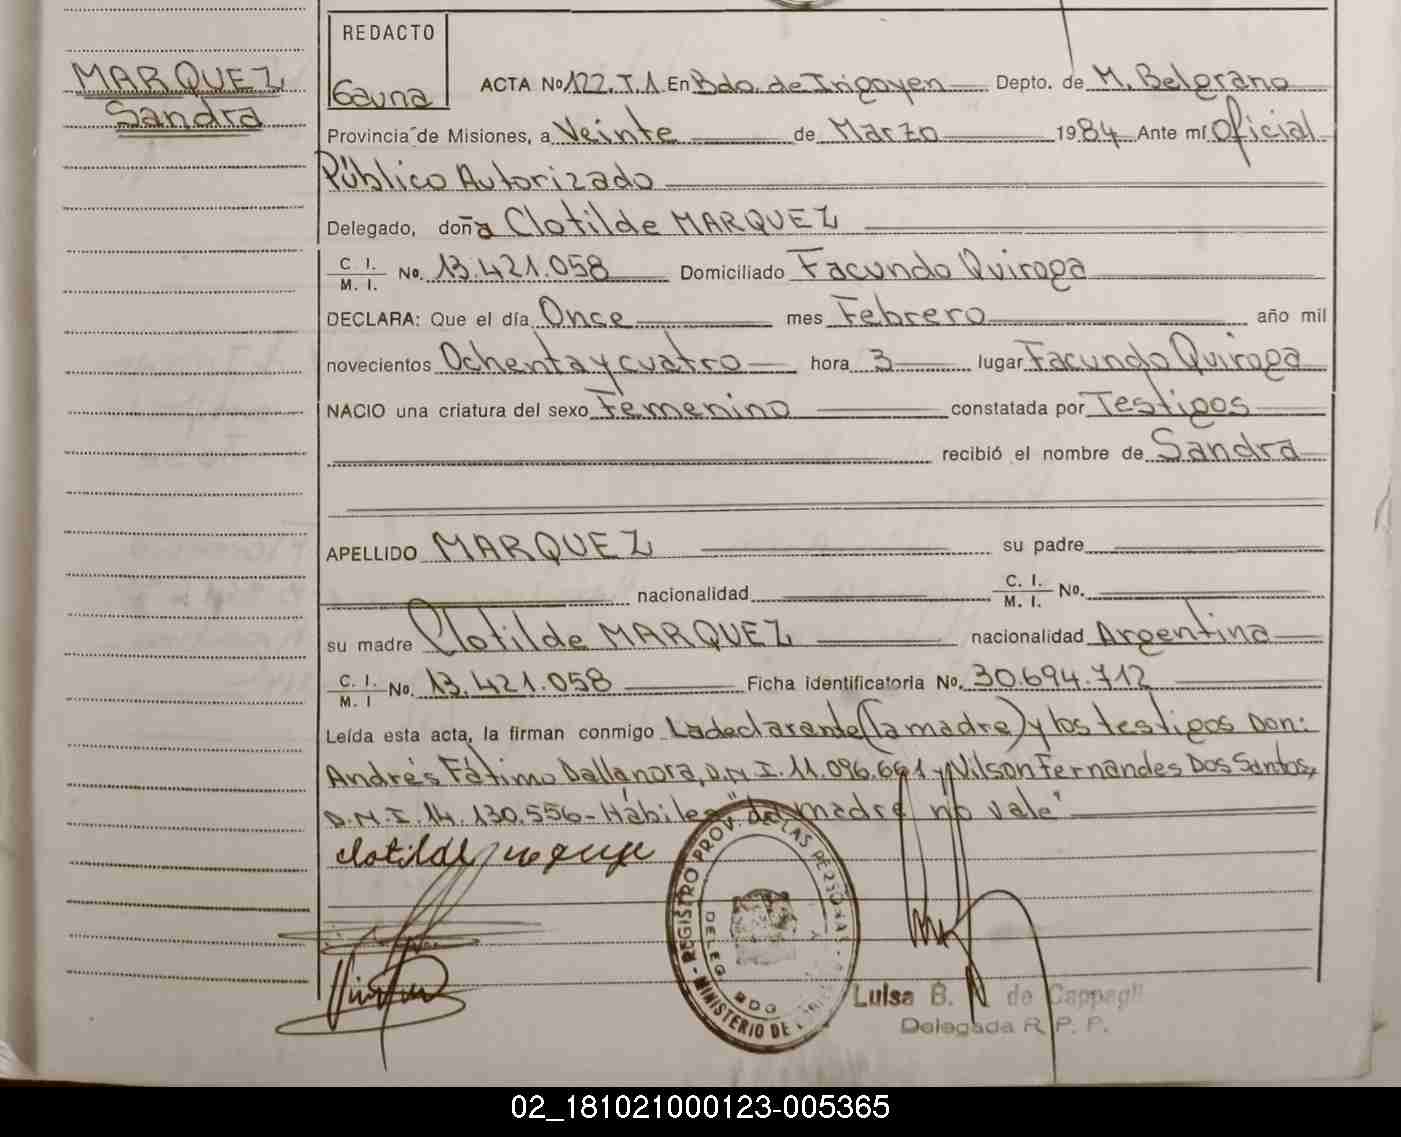 REDACTO
Gauna
MARQUEZ
Sandra
ACTA No 122. T. 1 En Bdo. de Irigoyen Depto. de M. Belgrano
Provincia de Misiones, a Veinte de Marzo 1984 Ante mí Oficial
Público Autorizado
Delegado, doña Clotilde MARQUEZ
C. I.
M. I. No. 13.421.058 Domiciliado Facundo Quiroga
DECLARA: Que el día Once mes Febrero año mil
novecientos Ochenta y cuatro hora 3 lugar Facundo Quiroga
NACIO una criatura del sexo Femenino constatada por Testigos
recibió el nombre de Sandra
APELLIDO MARQUEZ su padre
nacionalidad C. I.
M. I. No.
su madre Clotilde MARQUEZ nacionalidad Argentina
C. I.
M. I No. 13.421.058 Ficha identificatoria No. 30.694.712
Leída esta acta, la firman conmigo La declarante (la madre) y los testigos Don:
Andrés Fátimo Dallanora, D.N.I. 11.096.661 y Nilson Fernandes Dos Santos,
D.N.I. 14.130.556 - Hábiles "la madre no vale"
Clotilde
REGISTRO PROV. DE LAS PERSONAS
DELEG. BDO
MINISTERIO DE
Luisa B. de Cappagli
Delegada R. P. P.
02_181021000123-005365